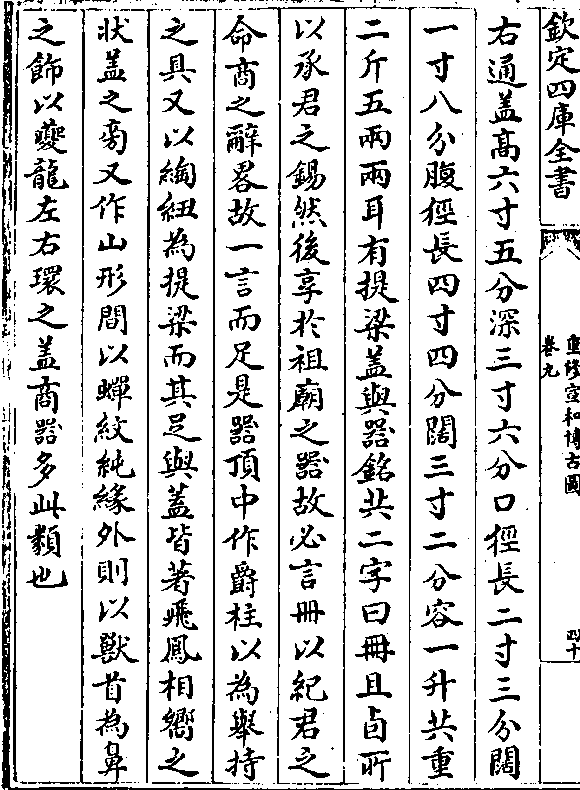 欽定四庫全書
重修宣和博古圖
卷九
四十
右通盖髙六寸五分深三寸六分口徑長二寸三分闊
一寸八分腹徑長四寸四分闊三寸二分容一升共重
二斤五兩兩耳有提梁盖與器銘共二字曰冊且卣所
以承君之錫然後享於祖廟之器故必言冊以紀君之
命商之辭畧故一言而足是器頂中作爵柱以為舉持
之具又以綯紐為提梁而其足與蓋皆著飛鳳相嚮之
狀盖之旁又作山形間以蟬紋純緣外則以獸首為鼻
之飾以夔龍左右環之盖商器多此類也